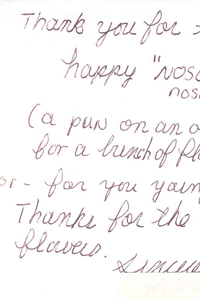 Thank you for
happy "nos
nos
(a pun on an o
for a bunch of fl
or - for you
Thanks for the
flowers.
Sincer